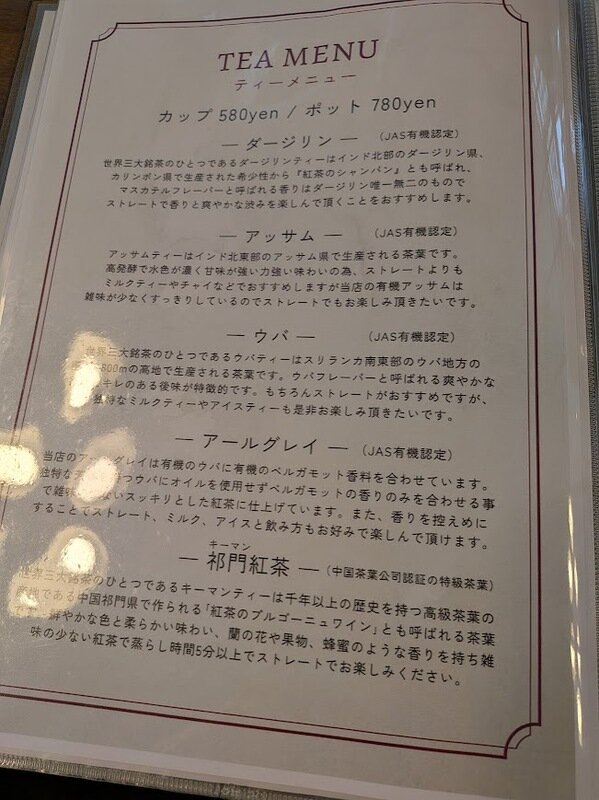 TEA MENU
ティーメニュー
カップ 580yen / ポット 780yen
— ダージリン — （JAS有機認定）
世界三大銘茶のひとつであるダージリンティーはインド北部のダージリン県、
カリンポン県で生産された希少性から『紅茶のシャンパン』とも呼ばれ、
マスカテルフレーバーと呼ばれる香りはダージリン唯一無二のもので
ストレートで香りと爽やかな渋みを楽しんで頂くことをおすすめします。
— アッサム — （JAS有機認定）
アッサムティーはインド北東部のアッサム県で生産される茶葉です。
高発酵で水色が濃く甘味が強い力強い味わいの為、ストレートよりも
ミルクティーやチャイなどでおすすめしますが当店の有機アッサムは
雑味が少なくすっきりしているのでストレートでもお楽しみ頂きたいです。
— ウバ — （JAS有機認定）
世界三大銘茶のひとつであるウバティーはスリランカ南東部のウバ地方の
800mの高地で生産される茶葉です。ウバフレーバーと呼ばれる爽やかな
キレのある後味が特徴的です。もちろんストレートがおすすめですが、
独特なミルクティーやアイスティーも是非お楽しみ頂きたいです。
— アールグレイ — （JAS有機認定）
当店のアールグレイは有機のウバに有機のベルガモット香料を合わせています。
独特な つウバにオイルを使用せずベルガモットの香りのみを合わせる事
で雑味 ないスッキリとした紅茶に仕上げています。また、香りを控えめに
することでストレート、ミルク、アイスと飲み方もお好みで楽しんで頂けます。
キーマン
— 祁門紅茶 — （中国茶葉公司認証の特級茶葉）
世界三大銘茶のひとつであるキーマンティーは千年以上の歴史を持つ高級茶葉の
である中国祁門県で作られる「紅茶のブルゴーニュワイン」とも呼ばれる茶葉
で 鮮やかな色と柔らかい味わい、蘭の花や果物、蜂蜜のような香りを持ち雑
味の少ない紅茶で蒸らし時間5分以上でストレートでお楽しみください。